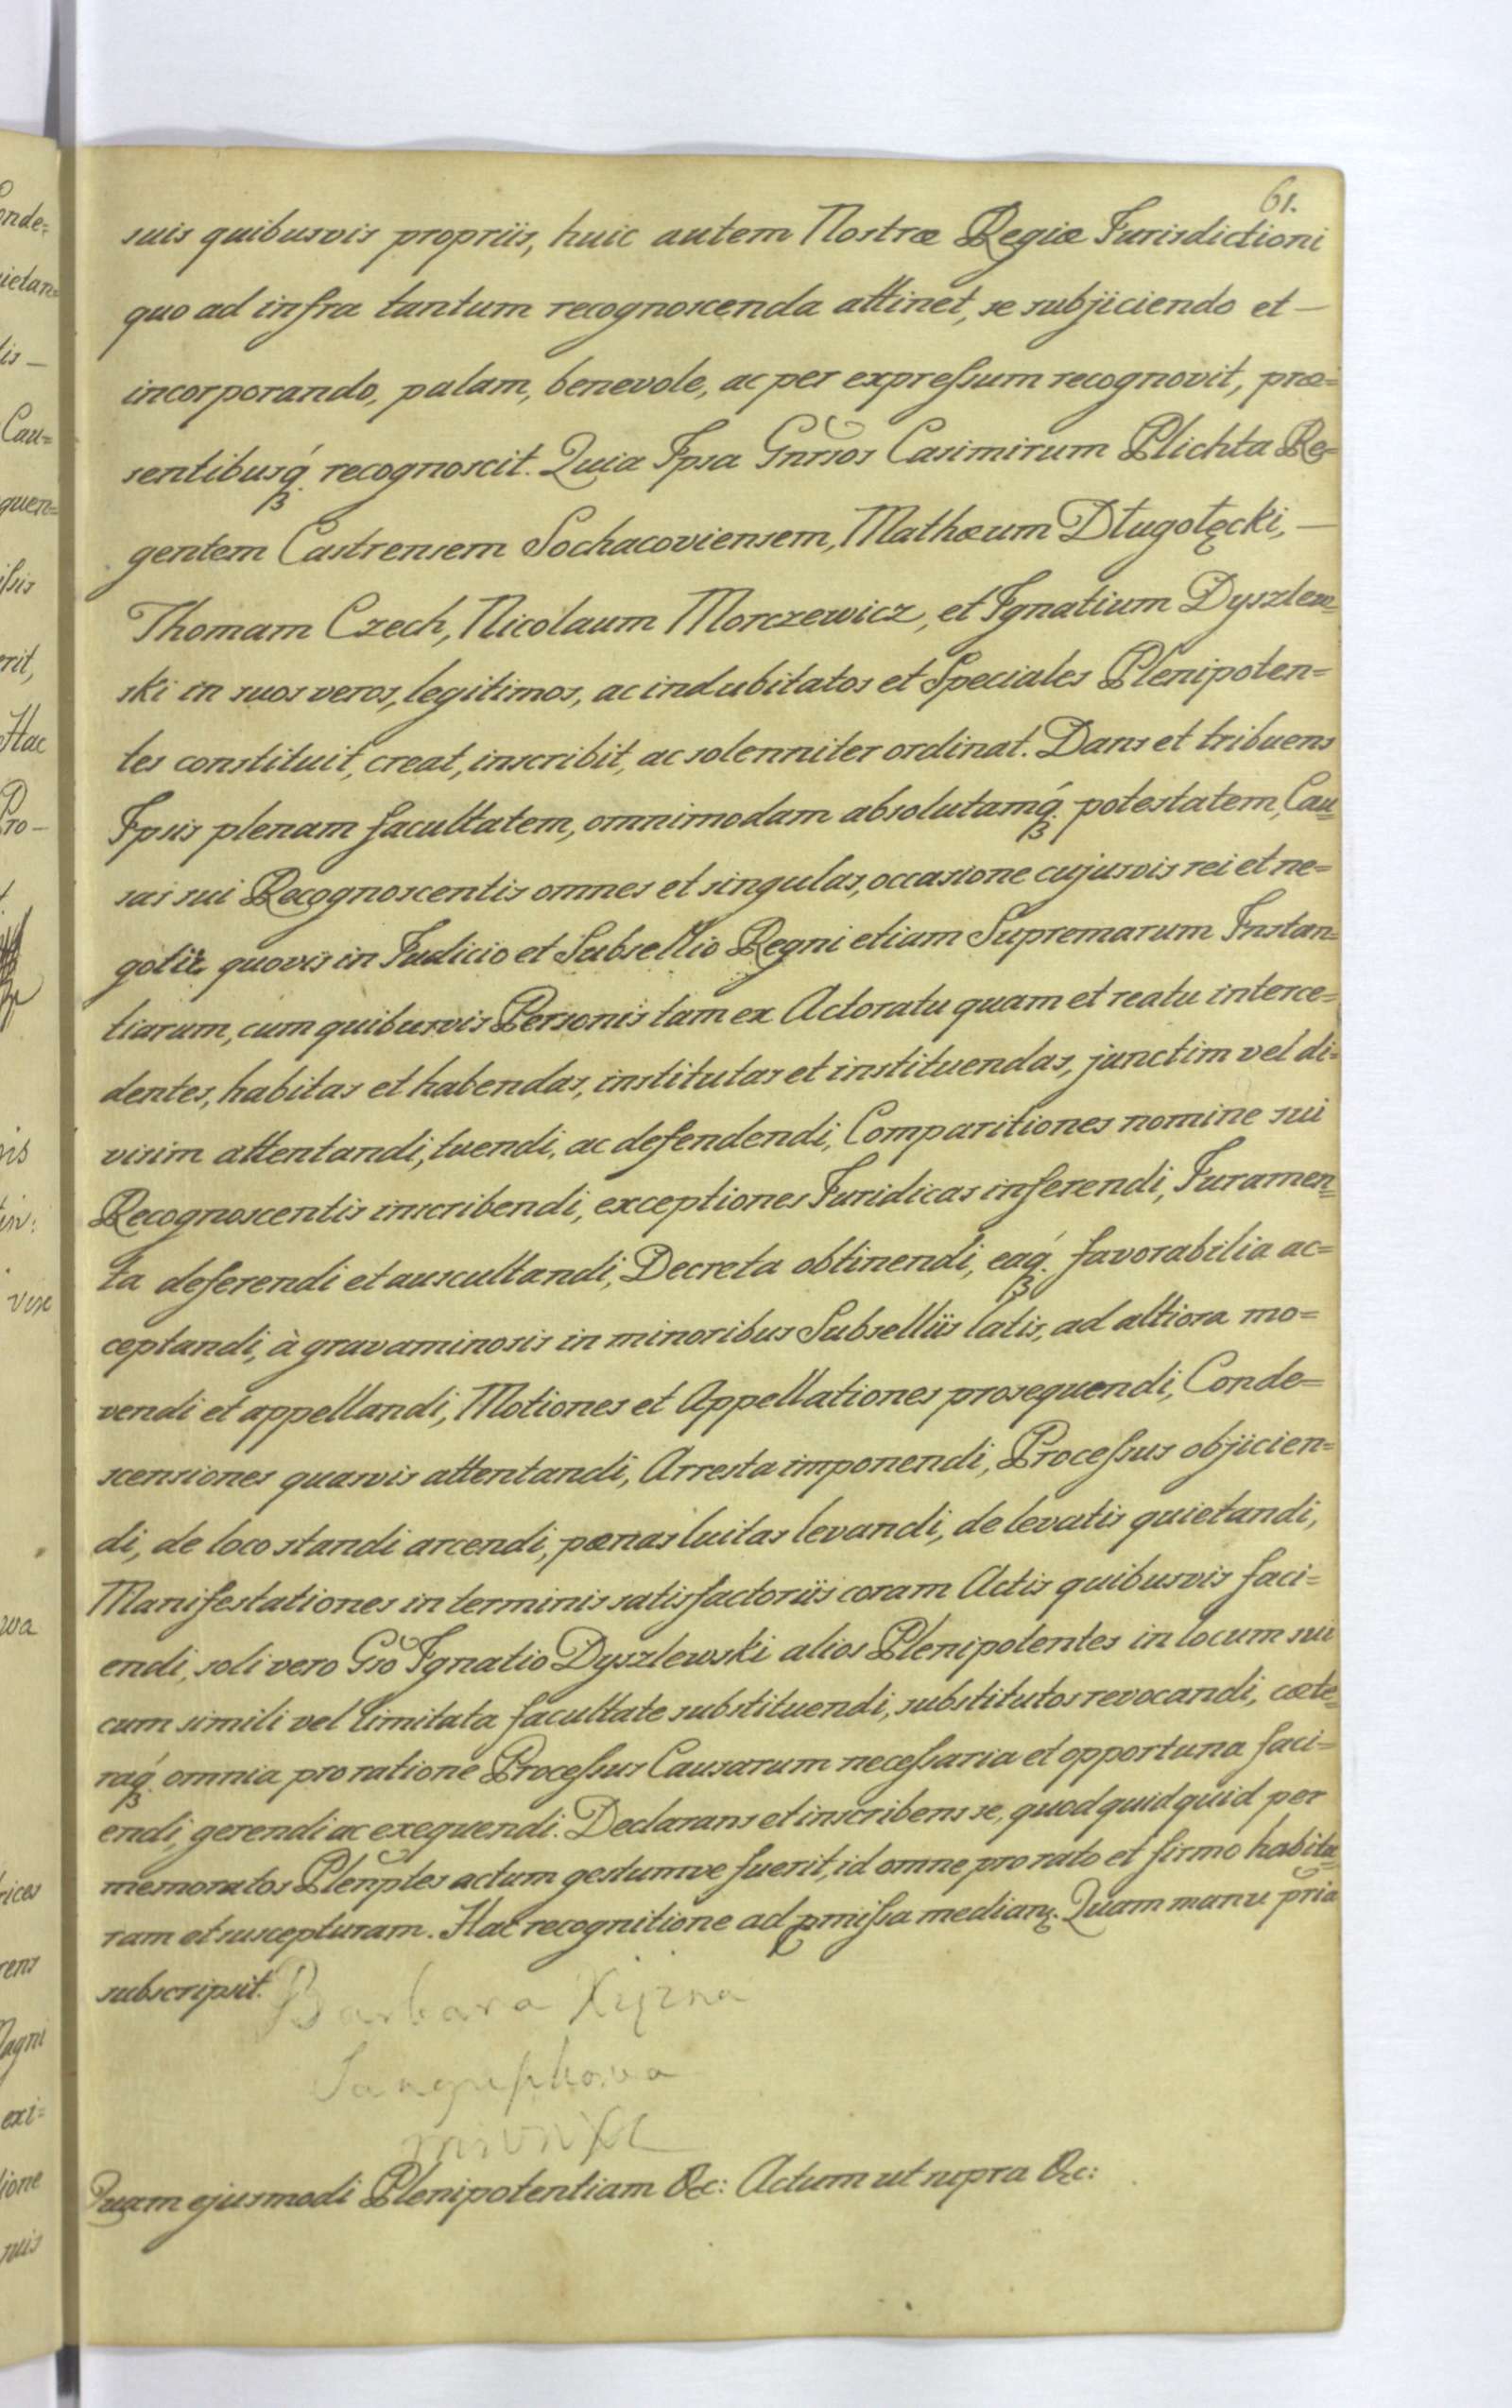 61.
suis quibusvis propriis, huic autem Nostræ Regiæ Jurisdictioni
quo ad infra tantum recognoscenda attinet, se subjiciendo et —
incorporando, palam, benevole, ac per expreſsum recognovit, præ=
sentibusq́ʒ. recognoscit. Quia Ipsa Gnrsos Casimirum Plichta Re=
gentem Castrensem Sochacoviensem, Mathæum Długołęcki, —
Thomam Czech, Nicolaum Morczewicz, et Ignatium Dyszlew=
ski in suos veros, legitimos, ac indubitatos et Speciales Plenipoten=
tes constituit, creat, inscribit, ac solenniter ordinat. Dans et tribuens
Ipsis plenam facultatem, omnimodam absolutamq́ʒ. potestatem, Cau=
sas sui Recognoscentis omnes et singulas, occasione cujusvis rei et ne=
gotii, quovis in Judicio et Subsellio Regni etiam Supremarum Instan=
tiarum, cum quibusvis Personis tam ex Actoratu quam et reatu interce=
dentes, habitas et habendas, institutas et instituendas, junctim vel di=
visim attentandi, tuendi, ac defendendi, Comparitiones nomine sui
Recognoscentis inscribendi, exceptiones Juridicas inferendi, Juramen=
ta deferendi et auscultandi, Decreta obtinendi, eaq́ʒ. favorabilia ac=
ceptandi, à gravaminosis in minoribus Subselliis latis, ad altiora mo=
vendi et appellandi, Motiones et Appellationes prosequendi, Conde=
scensiones quasvis attentandi, Arresta imponendi, Proceſsus objicien=
di, de loco standi arcendi, pœnas luitas levandi, de levatis quietandi,
Manifestationes in terminis satisfactoriis coram Actis quibusvis faci=
endi, soli vero Gso Ignatio Dyszlewski alios Plenipotentes in locum sui
cum simili vel limitata facultate substituendi, substitutos revocandi, cæte=
raq́ʒ. omnia pro ratione Proceſsus Causarum neceſsaria et opportuna faci=
endi, gerendi ac exequendi. Declarans et inscribens se, quod quidquid per
memoratos Plenptes actum gestumve fuerit, id omne pro rato et firmo habitu=
ram et suscepturam. Hac recognitione ad pmiſsa median. Quam manu pria
subscripsit. Barbara Xiężna
Sanguszkowa
mwnxl
Quam ejusmodi Plenipotentiam &c: Actum ut supra &c: